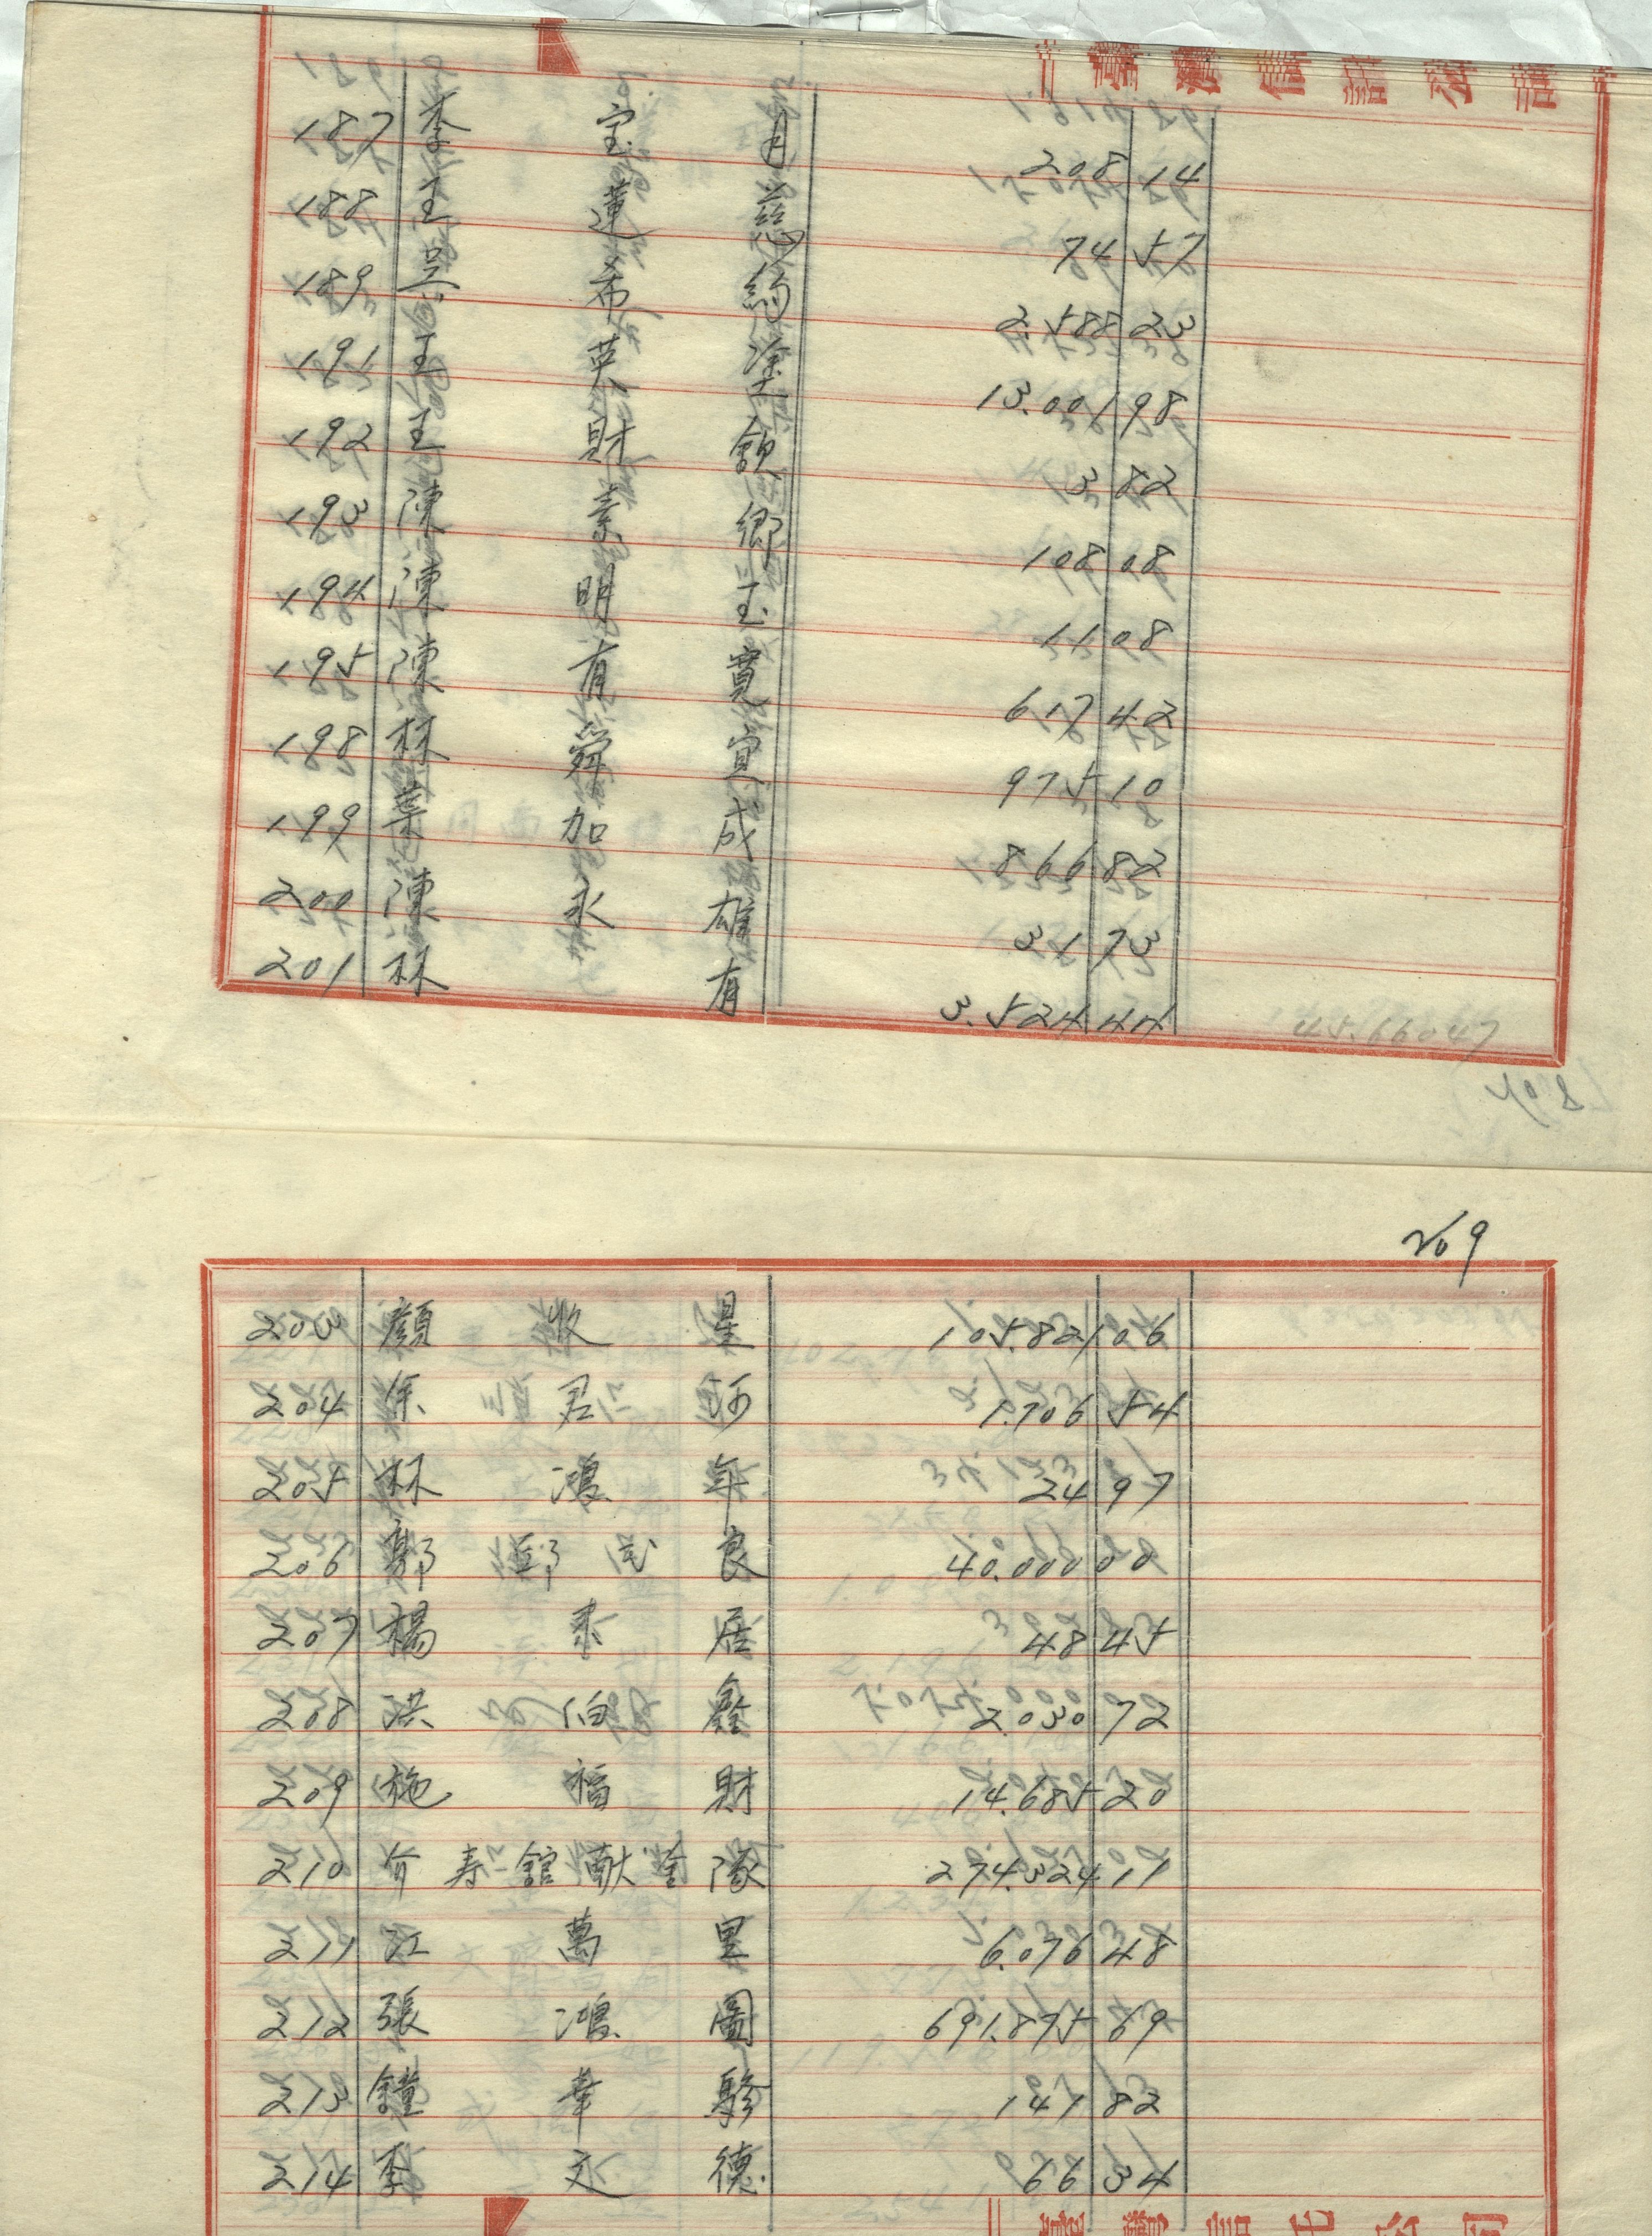 187 李宝月 208 14
188 王蓮慈 74 57
189 吳希綢 2.588 23
191 王英塗 13.001 98
192 王財 3 82
193 陳素鄉 108 08
194 陳明玉 11 08
195 陳有寬 617 42
198 林舜宜 975 10
199 葉加成 866 82
200 陳永雄 31 73
201 林有 3.524 44
45.660 47
No 9
203 顏收星 105.821 06
204 徐君河 1.706 54
205 林鴻年 24 97
206 鄭邱良 40.000 00
207 楊泰居 48 45
208 洪伯鑫 2.030 72
209 施福財 14.685 20
210 介寿舘献金隊 274.324 11
211 江萬里 6.076 48
212 張鴻圖 691.875 69
213 鐘韋驂 141 82
214 李文德 66 34